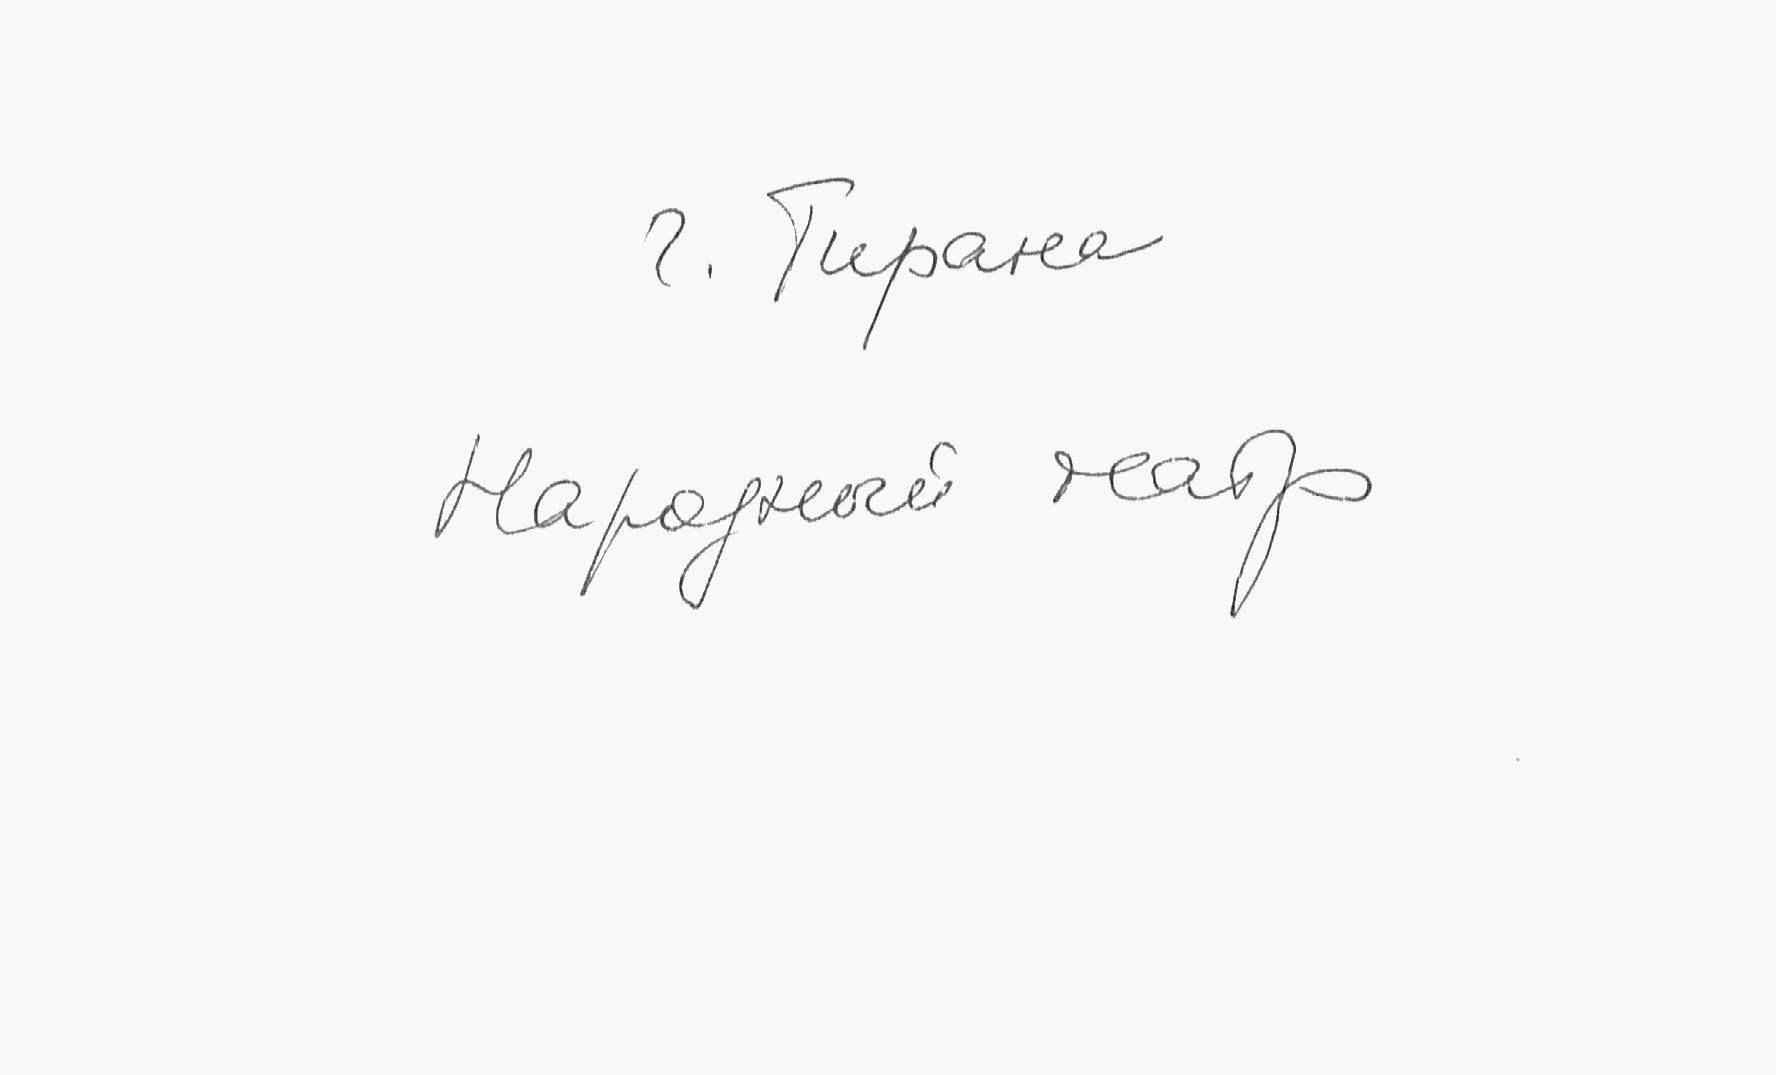 г. Тирана
Народный театр